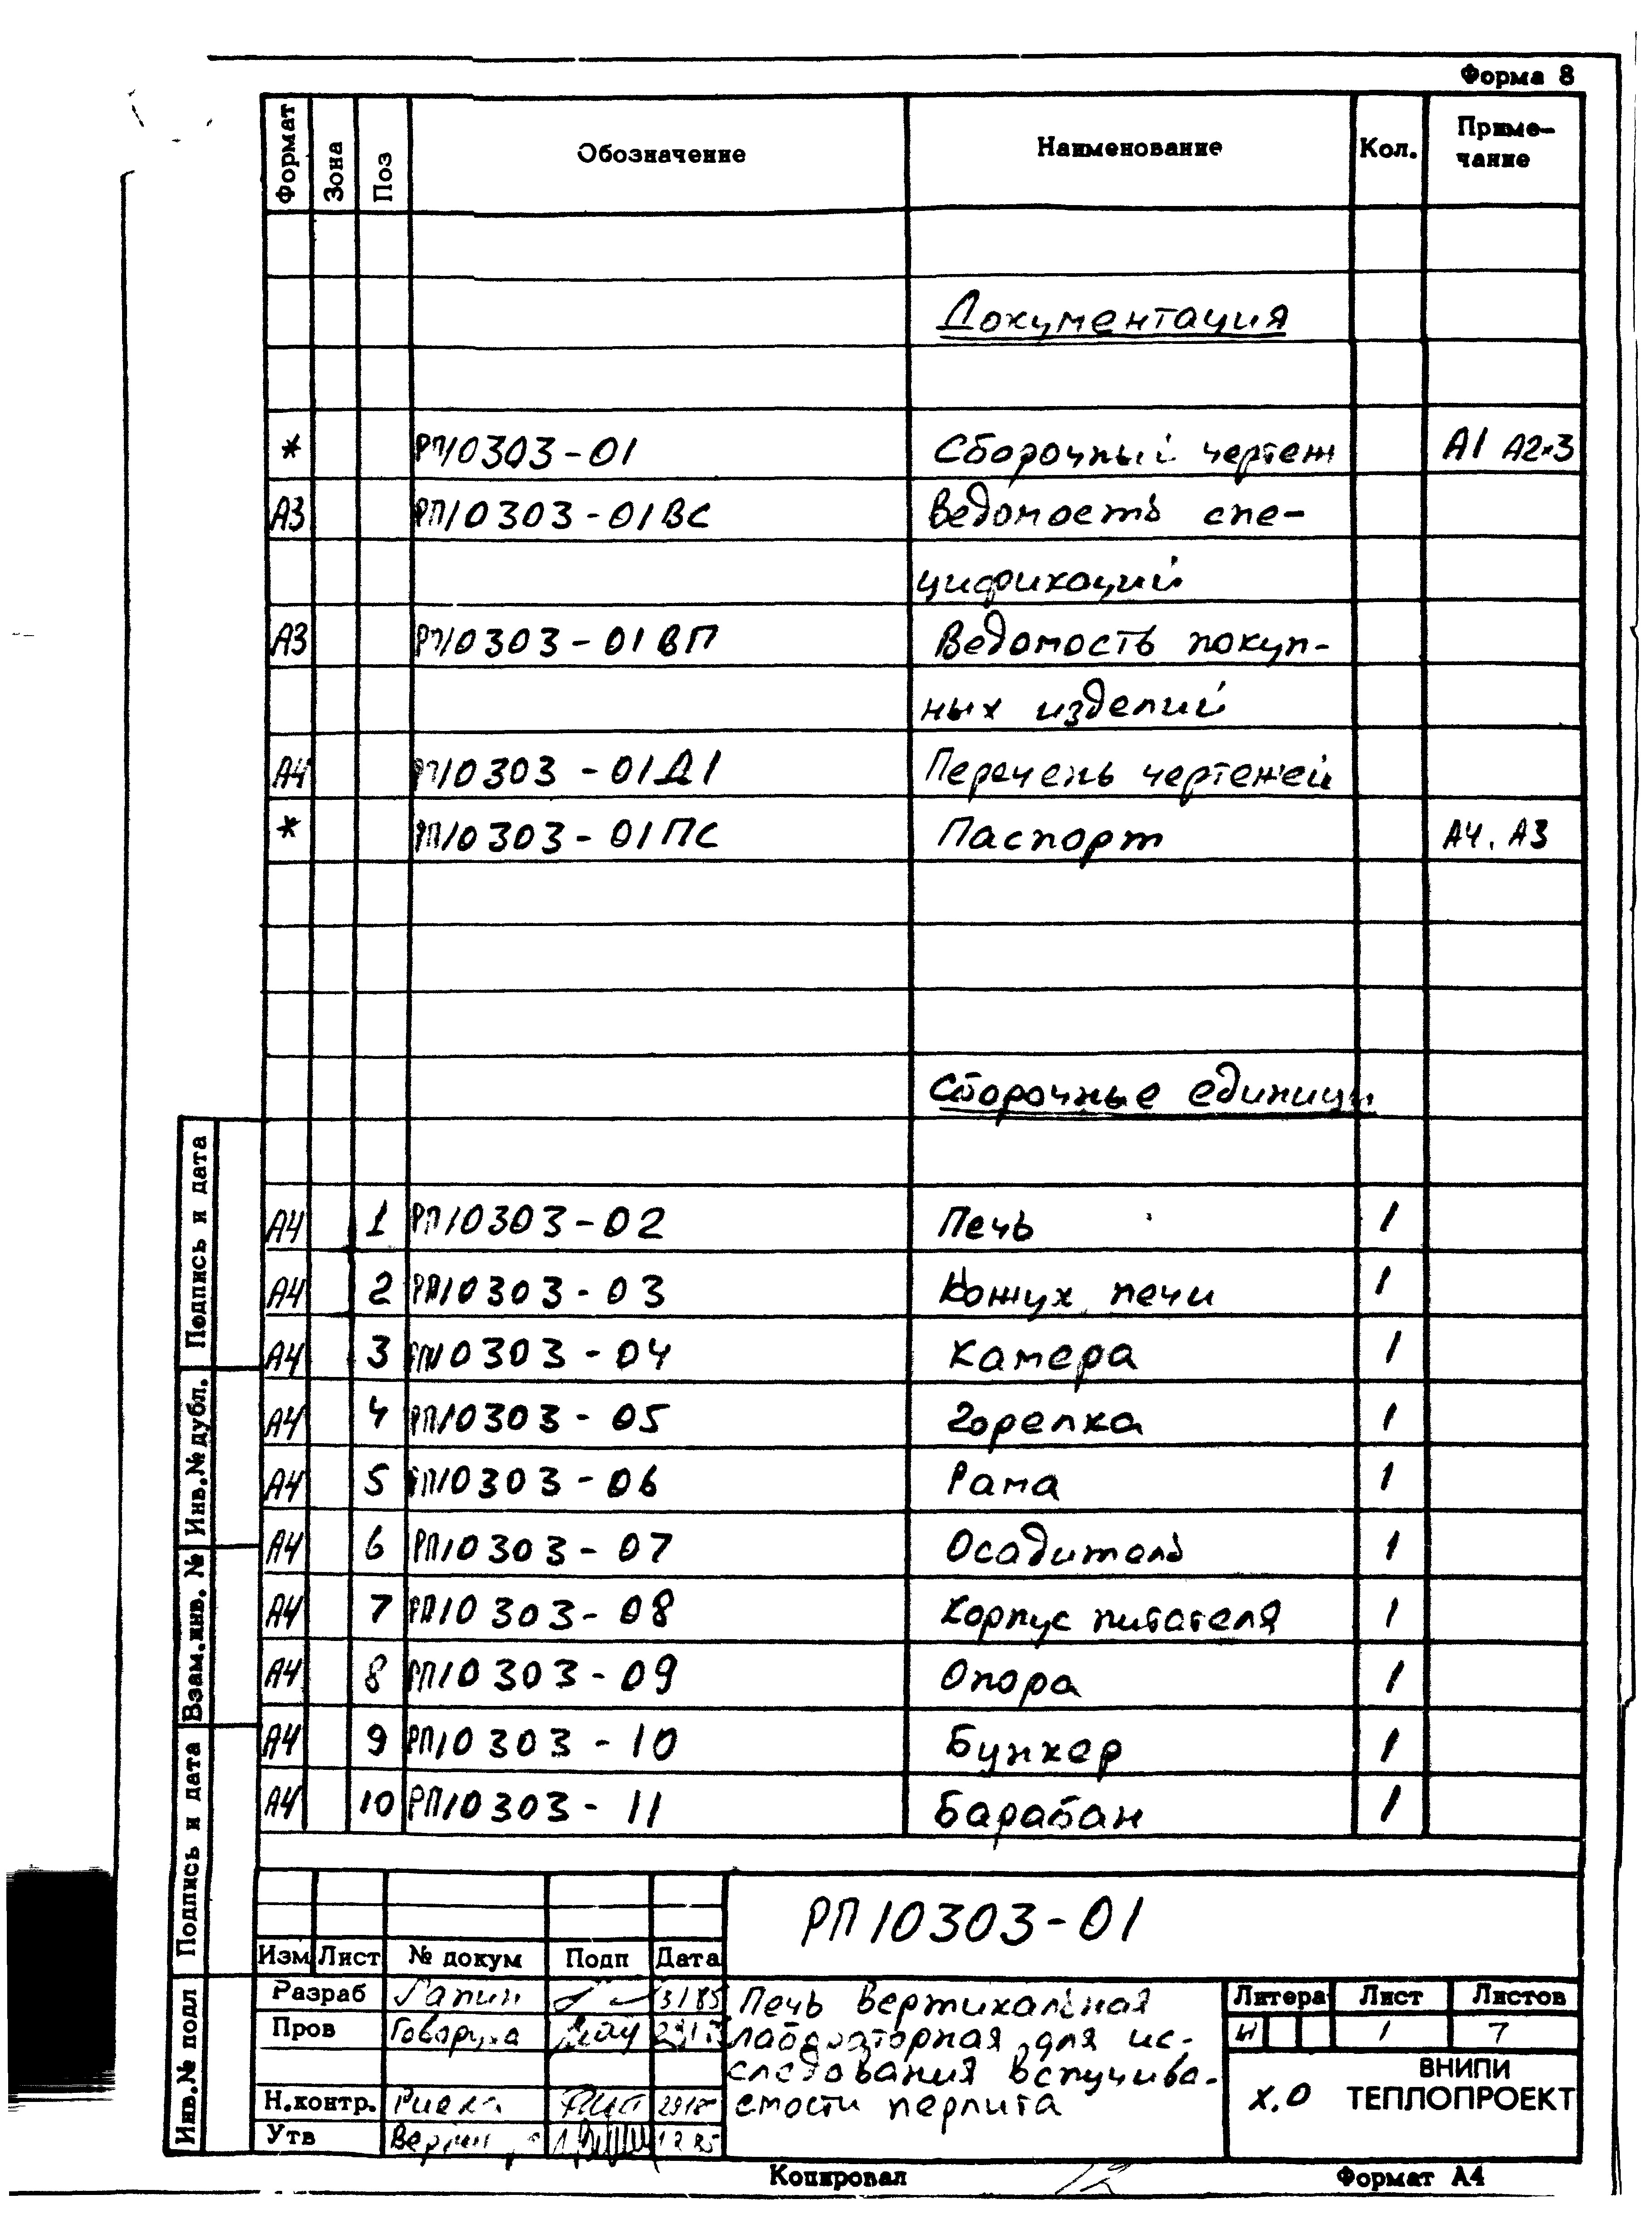 Форма 8
Формат Зона Поз Обозначение Наименование Кол. Приме-
чание
Документация
* РП10303-01 Сборочный чертеж А1 А2×3
А3 РП10303-01ВС Ведомость спе-
цификаций
А3 РП10303-01ВП Ведомость покуп-
ных изделий
А4 РП10303-01Д1 Перечень чертежей
* РП10303-01ПС Паспорт А4, А3
Сборочные единицы
А4 1 РП10303-02 Печь 1
А4 2 РП10303-03 Кожух печи 1
А4 3 РП10303-04 Камера 1
А4 4 РП10303-05 Горелка 1
А4 5 РП10303-06 Рама 1
А4 6 РП10303-07 Осадитель 1
А4 7 РП10303-08 Корпус питателя 1
А4 8 РП10303-09 Опора 1
А4 9 РП10303-10 Бункер 1
А4 10 РП10303-11 Барабан 1
Подпись и дата
Инв.№ дубл.
Взам.инв. №
Подпись и дата
Инв.№ подл
РП10303-01
Изм Лист № докум Подп Дата
Разраб Лапин
Пров Говоруха
Н.контр.
Утв
Печь вертикальная
лабораторная для ис-
следования вспучива-
емости перлита
Литера Лист Листов
И 1 7
х.о ВНИПИ
ТЕПЛОПРОЕКТ
Копировал Формат А4